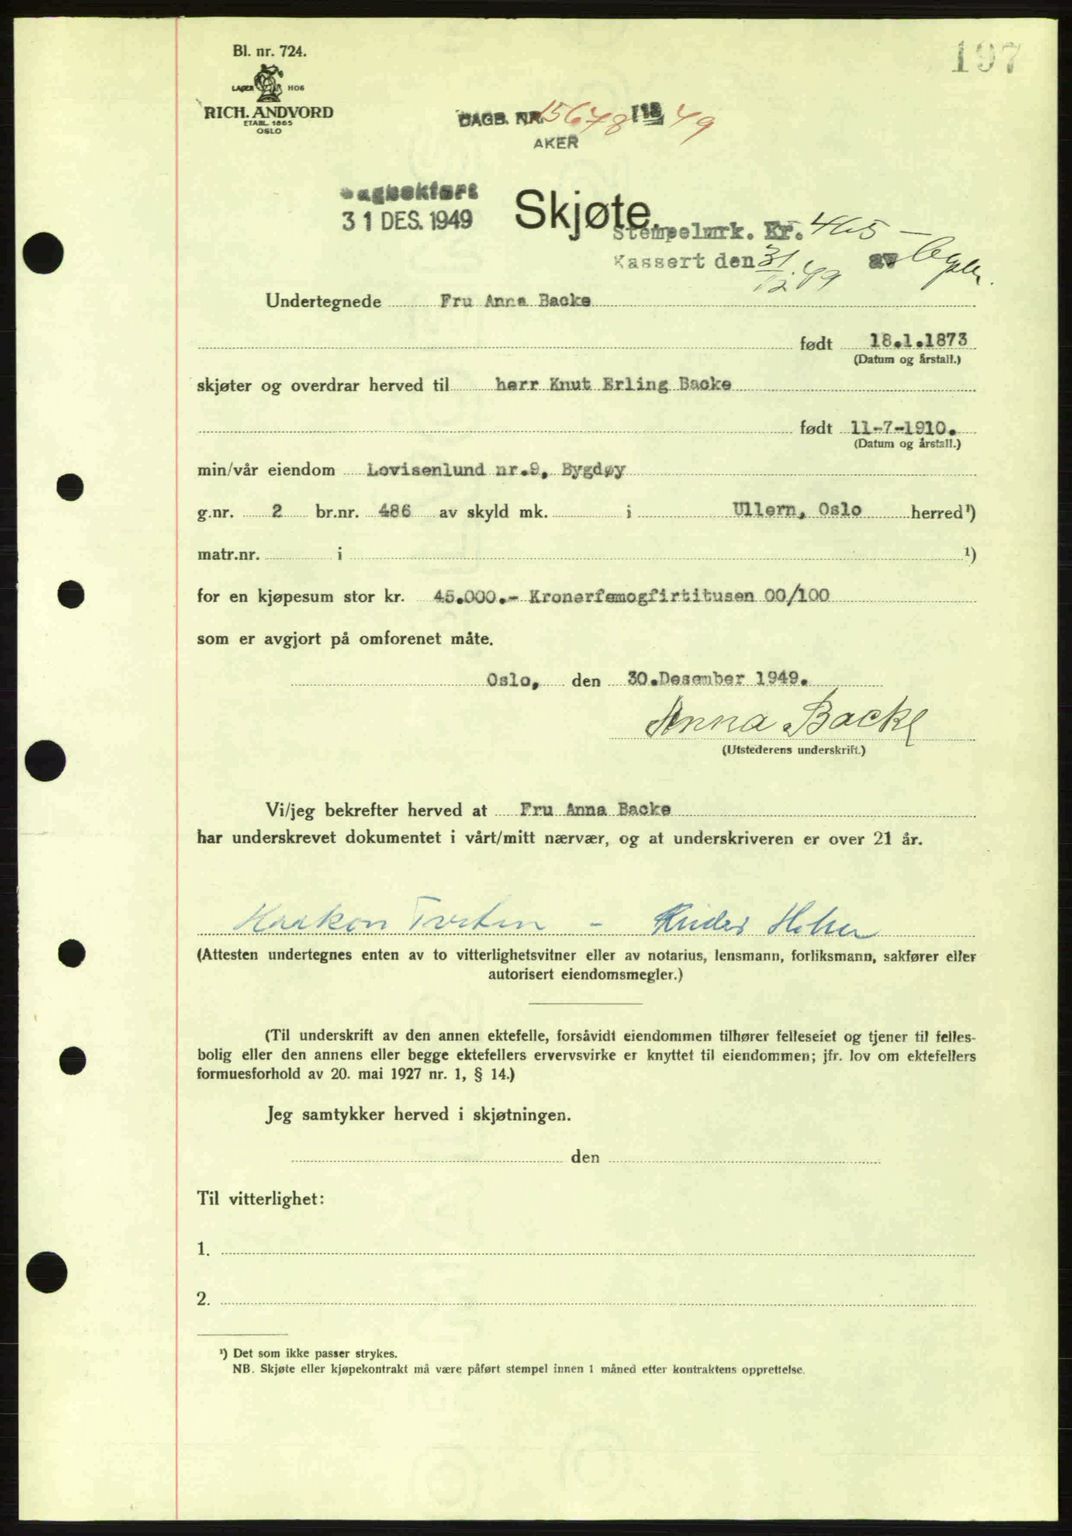 197
Bl. nr. 724.
LAGER HOS
RICH. ANDVORD
ETABL. 1865
OSLO
DAGB. NR. 15678 19 49
AKER
Dagbokført
31 DES. 1949
Skjøte.
Stempelmrk. Kr. 465 –
Kassert den 31/12 49 av
Undertegnede Fru Anna Backe
født 18.1.1873
(Datum og årstall.)
skjøter og overdrar herved til herr Knut Erling Backe
født 11-7-1910.
(Datum og årstall.)
min/vår eiendom Lovisenlund nr.9, Bygdøy
g.nr. 2 br.nr. 486 av skyld mk. i Ullern, Oslo herred¹)
matr.nr. i ¹)
for en kjøpesum stor kr. 45.000.- Kronerfemogfirtitusen 00/100
som er avgjort på omforenet måte.
Oslo, den 30.Desember 1949.
Anna Backe
(Utstederens underskrift.)
Vi/jeg bekrefter herved at Fru Anna Backe
har underskrevet dokumentet i vårt/mitt nærvær, og at underskriveren er over 21 år.
Haakon Tveten –
(Attesten undertegnes enten av to vitterlighetsvitner eller av notarius, lensmann, forliksmann, sakfører eller
autorisert eiendomsmegler.)
(Til underskrift av den annen ektefelle, forsåvidt eiendommen tilhører felleseiet og tjener til felles-
bolig eller den annens eller begge ektefellers ervervsvirke er knyttet til eiendommen; jfr. lov om ektefellers
formuesforhold av 20. mai 1927 nr. 1, § 14.)
Jeg samtykker herved i skjøtningen.
den
Til vitterlighet:
1.
2.
¹) Det som ikke passer strykes.
NB. Skjøte eller kjøpekontrakt må være påført stempel innen 1 måned etter kontraktens opprettelse.